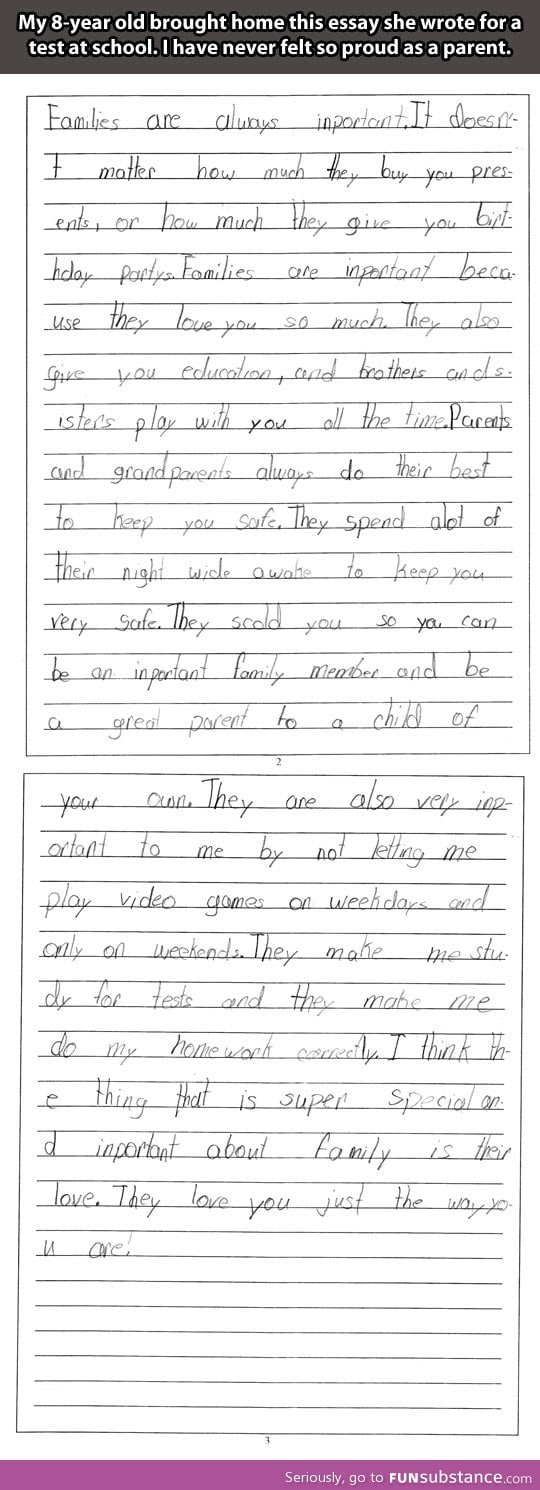 My 8-year old brought home this essay she wrote for a
test at school. I have never felt so proud as a parent.
Families are always inportant. It doesn'-
t matter how much they buy you pres-
ents, or how much they give you birt-
hday partys. Families are inportant beca-
use they love you so much. They also
give you education, and brothers and s-
isters play with you all the time. Parents
and grandparents always do their best
to keep you safe. They spend alot of
their night wide awake to keep you
very safe. They scold you so you can
be an inportant family member and be
a great parent to a child of
2
your own. They are also very inp-
ortant to me by not letting me
play video games on weekdays and
only on weekends. They make me stu-
dy for tests and they make me
do my homework correctly. I think th-
e thing that is super special an-
d inportant about family is their
love. They love you just the way yo-
u are!
3
Seriously, go to FUNsubstance.com